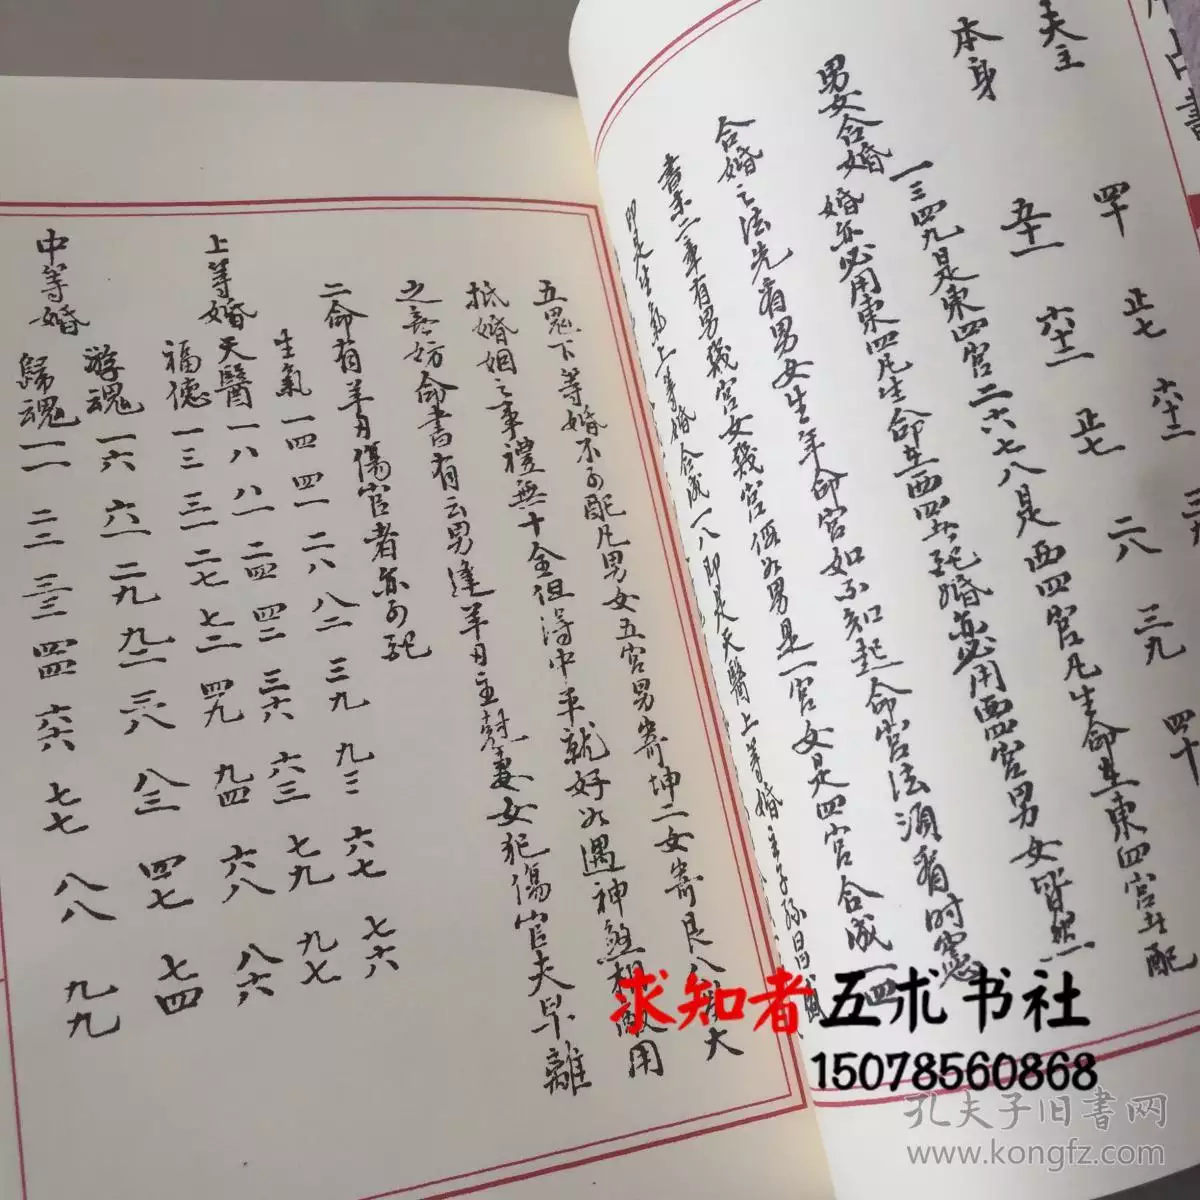 占書
夫主 四十 正七 六十二 三九
本身 五十一 六十二 正七 二八 三九 四十
男女合婚 一三四九是東四宮二六七八是西四宮凡生命在東四宮者配
婚亦必用東四凡生命在西四者配婚亦必用西四宮男女皆然
合婚之法先看男女生年命宮如不知起命宮法須看時憲
書末二章看男幾宮女幾宮假如男是一宮女是四宮合成一四
即是生氣上等婚合成一八即是天醫上等婚主子孫昌盛
五鬼下等婚不可配凡男女五宮男寄坤二女寄艮八大
抵婚姻之事禮無十全但得中平就好如遇神煞相敵用
之無妨命書有云男逢羊刃主尅妻女犯傷官夫早離
二命有羊刃傷官者亦可配
生氣 一四 四一 二八 八二 三九 九三 六七 七六
上等婚 天醫 一八 八一 二四 四二 三六 六三 七九 九七
福德 一三 三一 二七 七二 四九 九四 六八 八六
中等婚 游魂 一六 六一 二九 九二 三八 八三 四七 七四
歸魂 一一 二二 三三 四四 六六 七七 八八 九九
求知者 五术书社
15078560868
孔夫子旧书网
www.kongfz.com